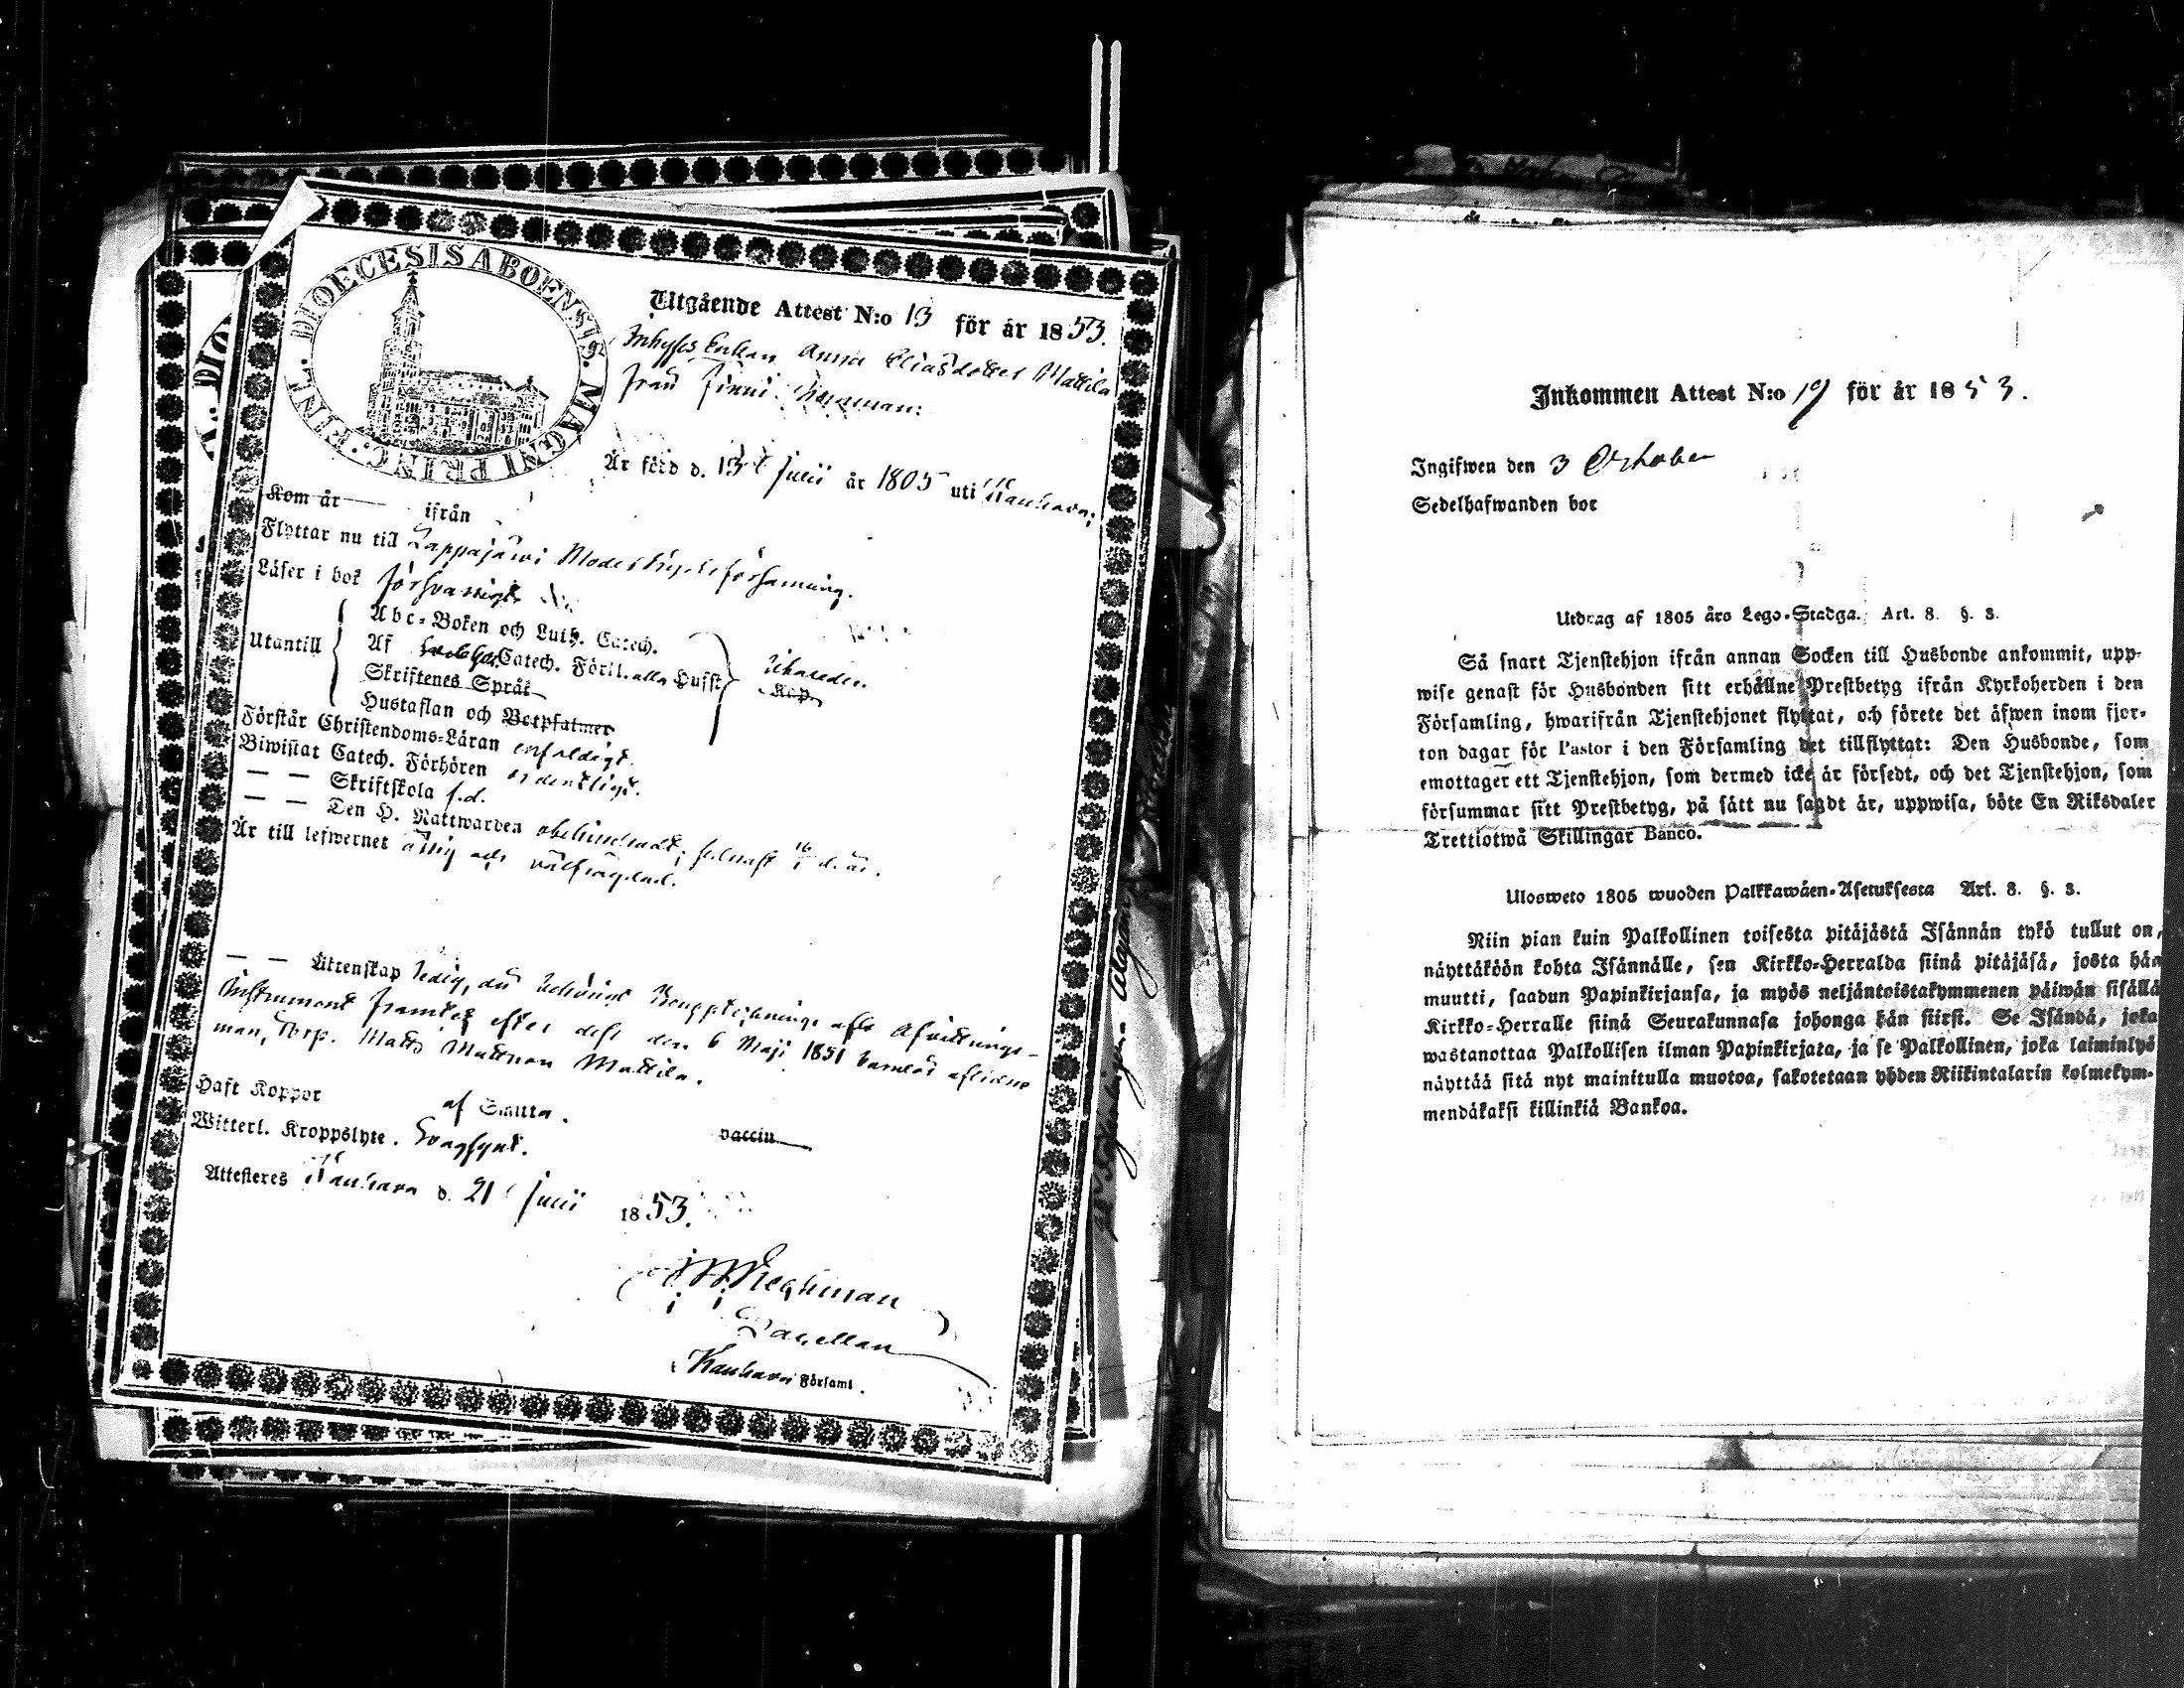 DIOECESIS ABOENSIS. MAGNI PRINC. FINL.
Utgående Attest N:o 13 för år 1853.
Inhyses Enkan Anna Eliasdotter Mattila
från
Är född d. 13 Julii år 1805 uti Kauhava;
Kom år — ifrån
Flyttar nu till Lappajärvi Moderkyrkoförsamling.
Läser i bok försvarligt
Utantill
Abc-Boken och Luth. Catech.
Af Catech. Förkl. alla Hufst
Skriftenes Språk
Hustaflan och Botpsalmer
Förstår Christendoms-Läran enfaldigt.
Biwistat Catech. Förhören ordentligt.
— — Skriftskola f.d.
— — Den H. Nattwarden obehindradt, senast d. år.
Är till lefwernet ärlig och välfrägdad.
— — Ägtenskap ledig, Bouppteknings eller Afvittnings-
instrument efter dess den 6 Maji 1851 barnlös aflidne
man, Torp. Matts Mattson Mattila.
Haft Koppor af Smitta. vaccin
Witterl. Kroppslyte. Svagsynt.
Attesteres Kauhava d. 21 Julii 1853.
Kauhava Församl.
Inkommen Attest N:o 19 för år 1853.
Ingifwen den 3 October
Sedelhafwanden bor
Utdrag af 1805 års Lego-Stadga. Art. 8. §. 3.
Så snart Tjenstehjon ifrån annan Socken till Husbonde ankommit, upp-
wise genast för Husbonden sitt erhållne Prestbetyg ifrån Kyrkoherden i den
Församling, hwarifrån Tjenstehjonet flyttat, och förete det äfwen inom fjor-
ton dagar för Pastor i den Församling det tillflyttat: Den Husbonde, som
emottager ett Tjenstehjon, som dermed icke är försedt, och det Tjenstehjon, som
försummar sitt Prestbetyg, på sätt nu sagdt är, uppwisa, böte En Riksdaler
Trettiotwå Skillingar Banco.
Ulosweto 1805 wuoden Palkkawäen-Asetuksesta Art. 8. §. 3.
Niin pian kuin Palkollinen toisesta pitäjästä Isännän tykö tullut on,
näyttäköön kohta Isännälle, sen Kirkko-Herralda siinä pitäjäsä, josta hän
muutti, saadun Papinkirjansa, ja myös neljäntoistakymmenen päiwän sisällä
Kirkko-Herralle siinä Seurakunnasa johonga hän siirsi. Se Isändä, joka
wastanottaa Palkollisen ilman Papinkirjata, ja se Palkollinen, joka laiminlyö
näyttää sitä nyt mainitulla muotoa, sakotetaan yhden Riikintalarin kolmekym-
mendäkaksi killinkiä Bankoa.